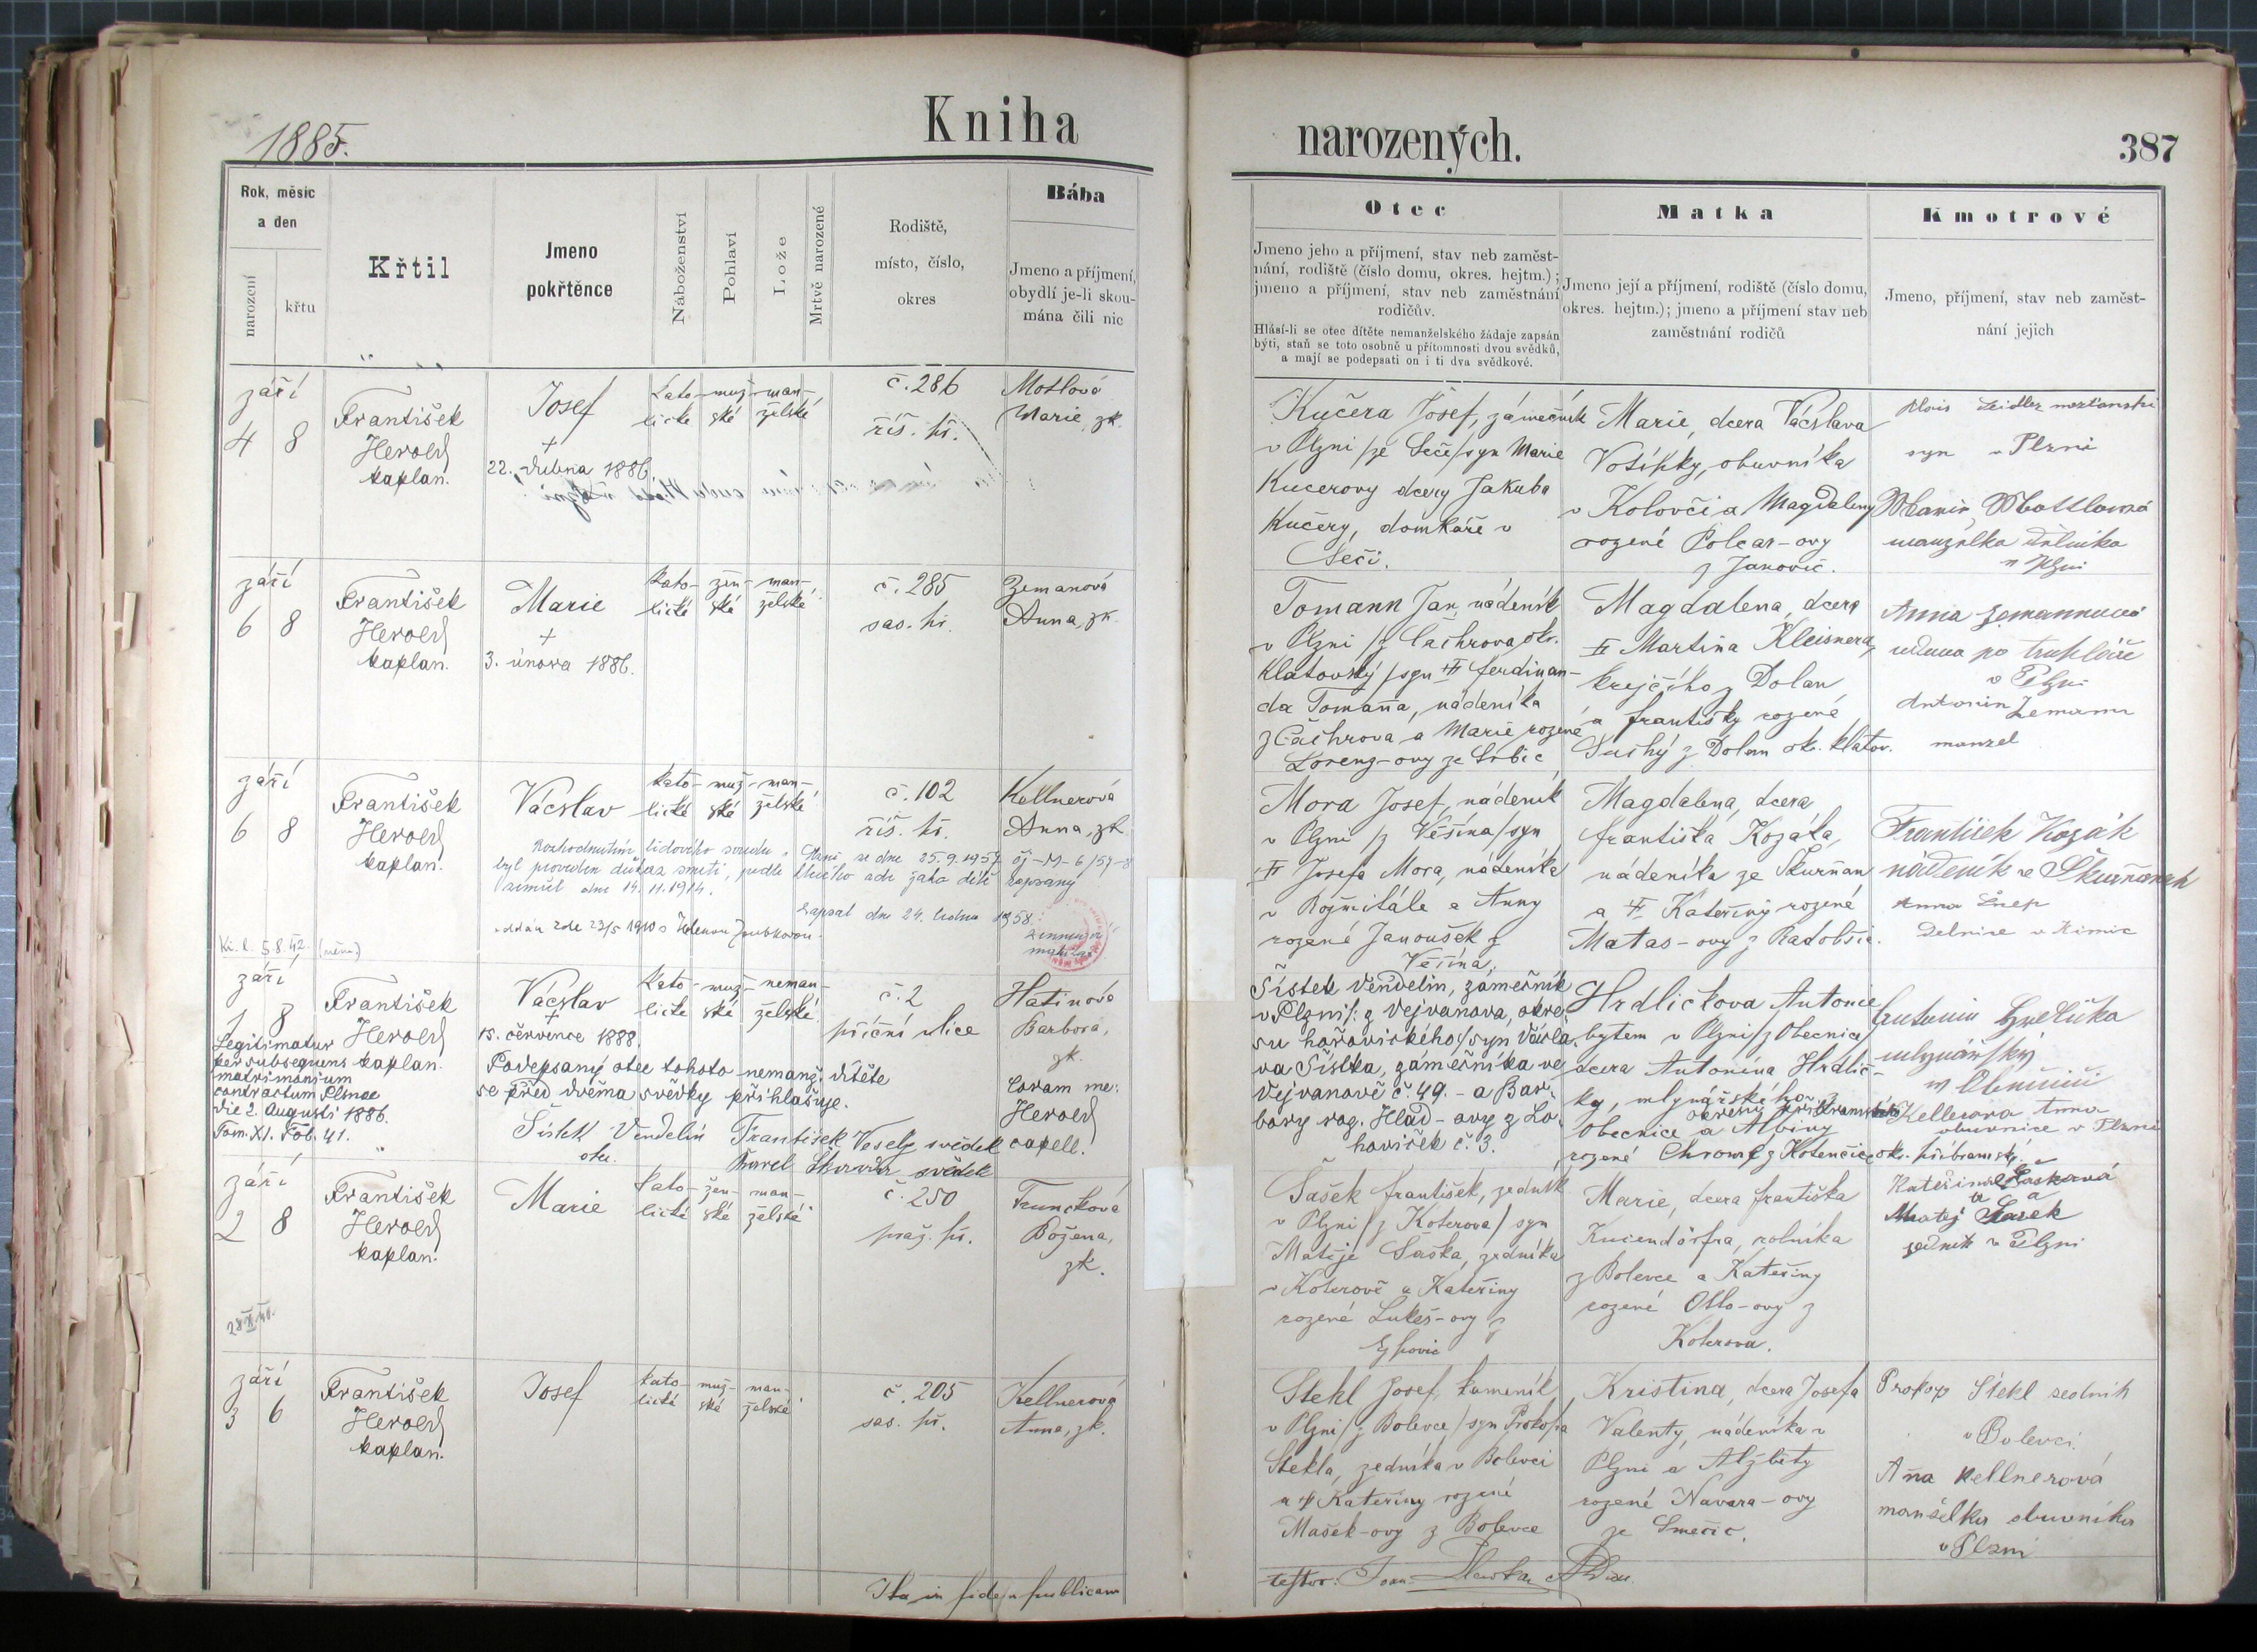 1885.
Kniha
narozených.
387
Rok, měsíc
a den
narození
křtu
Křtil
Jmeno
pokřtěnce
Náboženství
Pohlaví
Lože
Mrtvě narozené
Rodiště,
místo, číslo,
okres
Bába
Jmeno a příjmení,
obydlí je-li skou-
mána čili nic
Otec
Jmeno jeho a příjmení, stav neb zaměst-
nání, rodiště (číslo domu, okres. hejtm.);
jmeno a příjmení, stav neb zaměstnání
rodičův.
Hlásí-li se otec dítěte nemanželského žádaje zapsán
býti, staň se toto osobně u přítomnosti dvou svědků,
a mají se podepsati on i ti dva svědkové.
Matka
Jmeno její a příjmení, rodiště (číslo domu,
okres. hejtm.); jmeno a příjmení stav neb
zaměstnání rodičů
Kmotrové
Jmeno, příjmení, stav neb zaměst-
nání jejich
září
4 8
František
Herold
kaplan.
Josef
+
22. dubna 1886
kato-
lické
muž-
ské
man-
želské
č. 286
říš. př.
Motlová
Marie, zk.
Kučera Josef, zámečník
v Plzni /ze Seče/ syn Marie
Kučerovy dcery Jakuba
Kučery, domkáře v
Seči.
Marie, dcera Vácslava
Votípky, obuvníka
v Kolovči a Magdaleny
rozené Polcar-ovy
z Janovic.
Alois Seidler
syn v Plzni
manželka dělníka
v Plzni
září
6 8
František
Herold
kaplan.
Marie
+
3. února 1886.
kato-
lické
žen-
ské
man-
želské
č. 285
sas. př.
Zemanová
Anna, zk.
Tomann Jan, nádeník
v Plzni /z Čachrova okr.
klatovský/ syn Ferdinan-
da Tomanna, nádeníka
z Čachrova a Marie rozené
Lorenz-ovy ze Srbic
Magdalena, dcera
Martina Kleisnera,
krejčího z Dolan
a Františky rozené
Suchý z Dolan ok. klatov.
Anna Zemannová
vdova po truhláři
v Plzni
Antonín Zemann
manžel
září
6 8
František
Herold
kaplan.
Vácslav
kato-
lické
muž-
ské
man-
želské
č. 102
říš. př.
Kellnerová
Anna, zk.
Rozhodnutím lidového soudu v Plzni ze dne 25.9.1957
byl proveden důkaz smrti, podle kterého zde
zemřel dne 14.11.1914.
Zapsal dne 24. ledna 1958
oddán zde 23/5 1910 s Helenou Zoubkovou.
5.8.42.
Mora Josef, nádeník
v Plzni /z Věšína/ syn
Josefa Mora, nádeníka
v Rožmitále a Anny
rozené Janoušek z
Věšína.
Magdalena, dcera
Františka Kozáka,
nádeníka ze Škurňan
a Kateřiny rozené
Matas-ovy z Radobčic.
František Kozák
nádeník ve Škurňanech
Anna
září
1 8
František
Herold
kaplan.
Legitimatur
per subsequens
matrimonium
contractum Plsnae
die 2. Augusti 1886.
Tom. XI. Fol. 41.
Vácslav
+
15. července 1888.
kato-
lické
muž-
ské
neman-
želské.
č. 2
příční ulice
Hatinová
Barbora,
zk.
Podepsaný otec tohoto nemanž. dítěte
se před dvěma svědky přihlašuje.
Šístek Vendelín
otec.
František Veselý svědek
Karel svědek
Coram me:
Herold
capell.
Šístek Vendelín, zámečník
v Plzni /: z Vejvanova, okre-
su hořovického/ syn Václa-
va Šístka, zámečníka ve
Vejvanově č. 49. - a Bar-
bory roz. Hlad-ovy z Lo-
hoviček č. 3.
Hrdličkova Antonie
bytem v Plzni /z Obecnice/
dcera Antonína Hrdlič-
ky, mlynářského z
Obecnice okresu příbramského a Albiny
rozené Chromé z Kotenčic ok. příbramský.
Antonín Hrdlička
mlynářský
v Obecnici
Kellerova Anna
obuvnice v Plzni
září
2 8
František
Herold
kaplan.
Marie
kato-
lické
žen-
ské
man-
želské
č. 250
praž. př.
Trunečková
Božena,
zk.
Šašek František, zedník
v Plzni /z Koterova/ syn
Matěje Šaška, zedníka
v Koterově a Kateřiny
rozené Lukeš-ovy z
Ejpovic
Marie, dcera Františka
Kuciendörfra, rolníka
z Bolevce a Kateřiny
rozené Otto-ovy z
Koterova.
Kateřina Šašková
a
Matěj Šašek
zedník v Plzni
září
3 6
František
Herold
kaplan.
Josef
kato-
lické
muž-
ské
man-
želské
č. 205
sas. př.
Kellnerová
Anna, zk.
Stekl Josef, kameník
v Plzni /z Bolevce/ syn Prokopa
Stekla, zedníka v Bolevci
a Kateřiny rozené
Mašek-ovy z Bolevce
Kristina, dcera Josefa
Valenty, nádeníka v
Plzni a Alžběty
rozené Navara-ovy
ze Smečic.
Prokop Stekl zedník
v Bolevci.
Anna Kellnerová
manželka obuvníka
v Plzni
Ita in fidem publicam
testor: Joan.